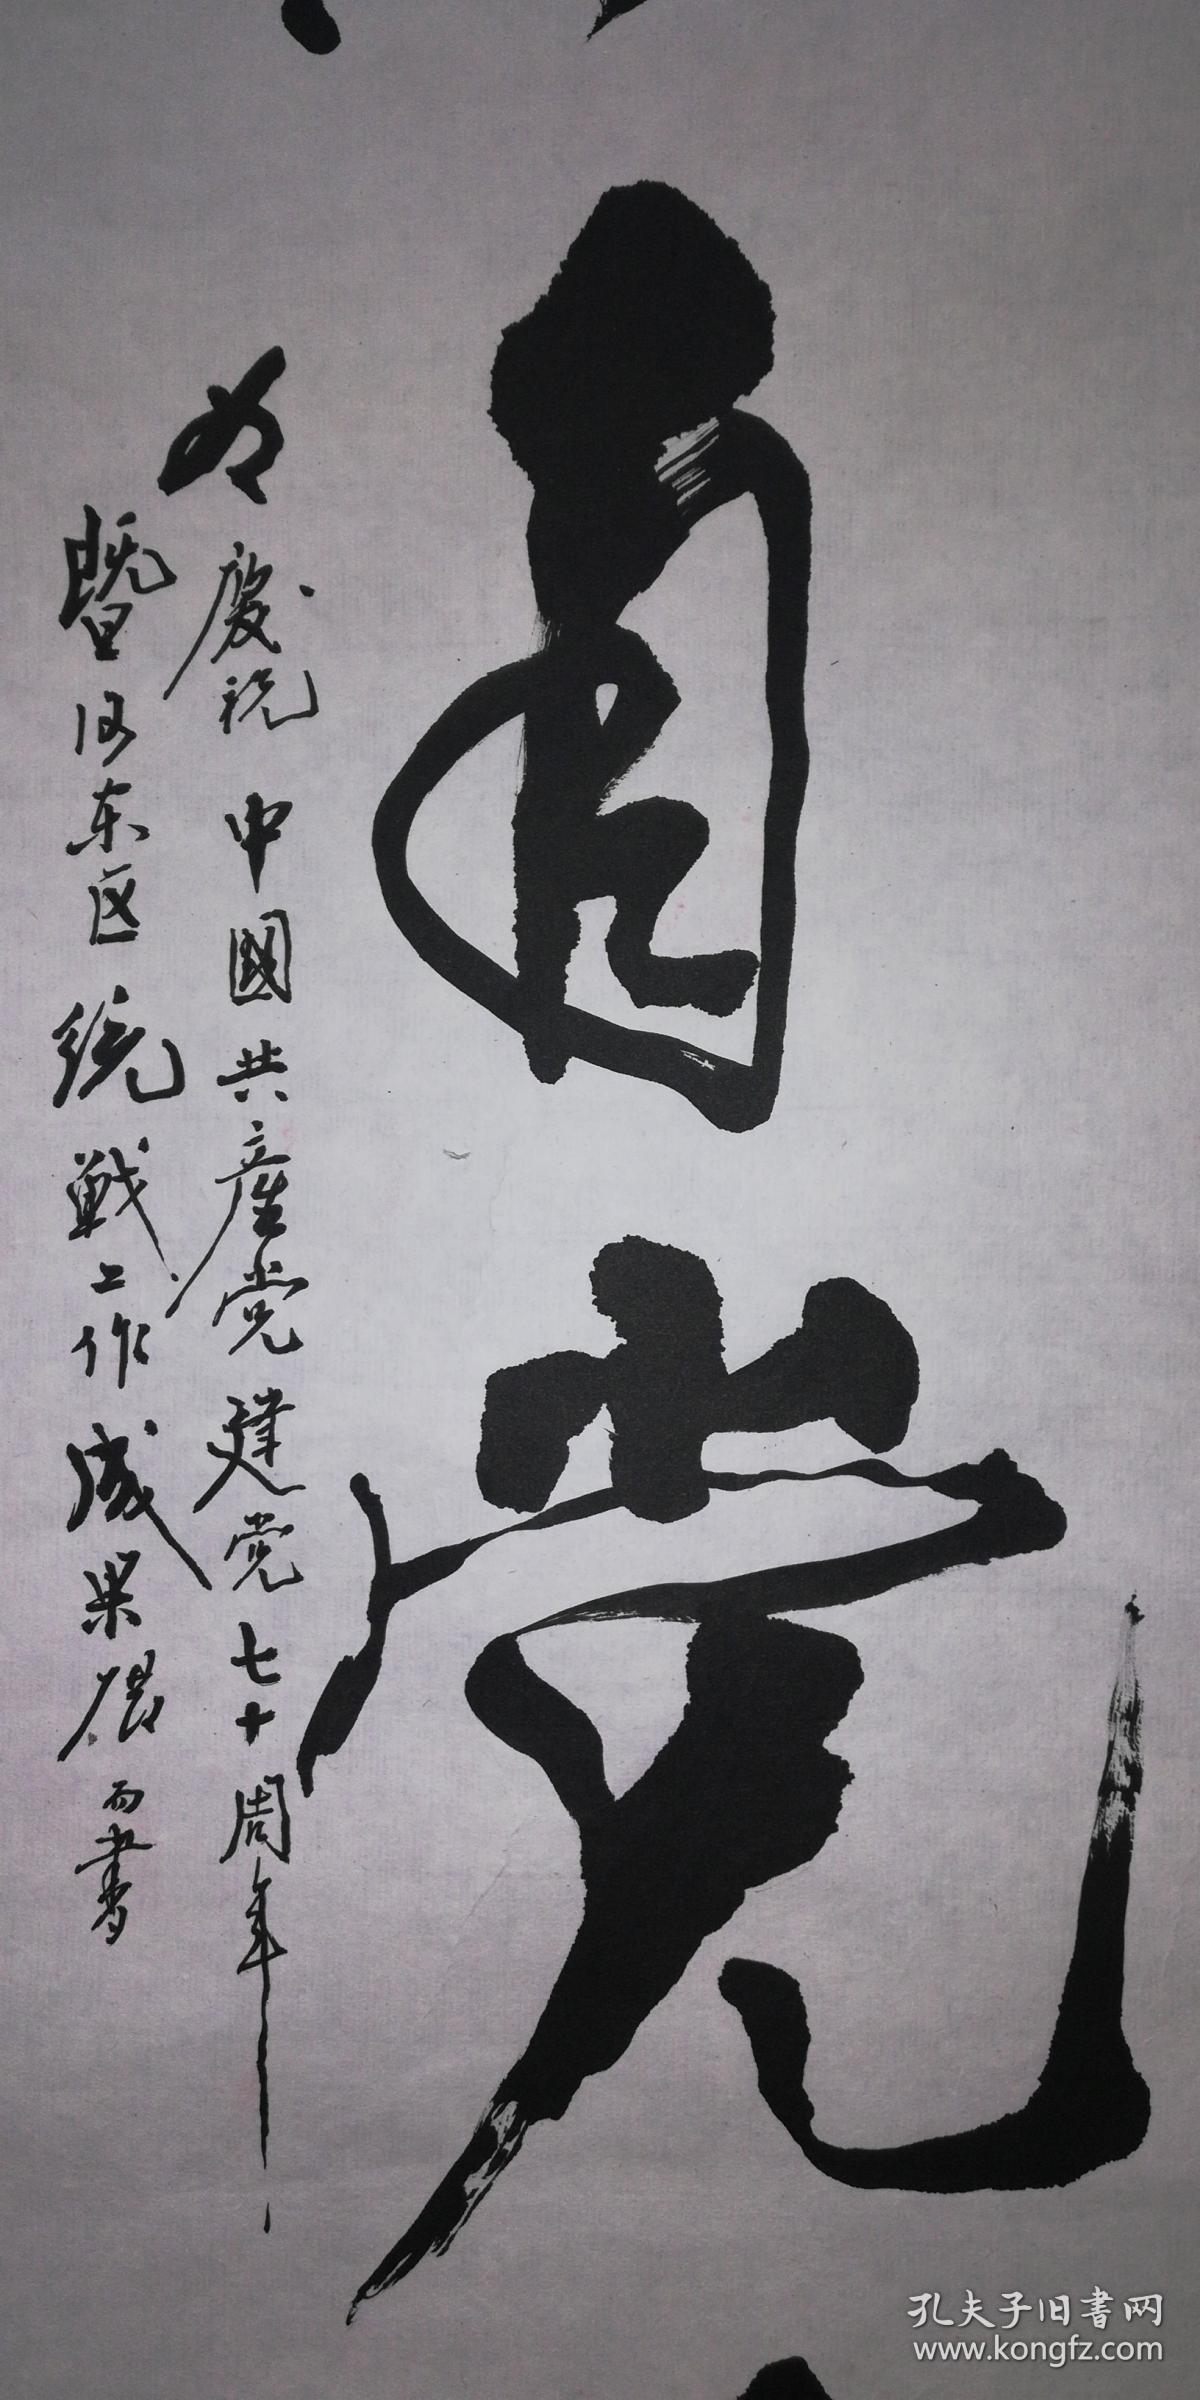 自党
为庆祝中國共産党建党七十周年
暨河东区统戦工作成果展而書
孔夫子旧書网
www.kongfz.com